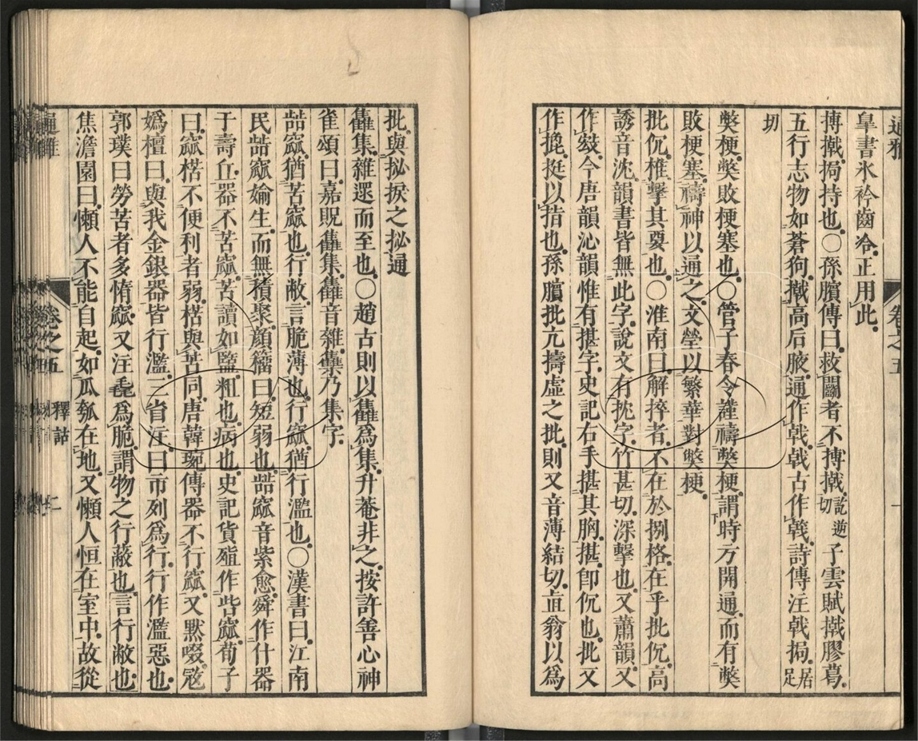 皐書氷衿齒冷正用此
搏撠挶持也○孫臏傳曰救鬬者不搏撠訖逆切子雲賦撠膠葛
五行志物如蒼狗撠高后腋通作戟戟古作㦸詩傳注戟挶居足
切
獘梗獘敗梗塞也○管子春令謹禱獘梗謂時方開通而有獘
敗梗塞禱神以通之文瑩以繁華對獘梗
批伔椎擊其要也○淮南曰解捽者不在於捌格在乎批伔高
誘音沈韻書皆無此字說文有抌字竹甚切深擊也又蕭韻又
作今唐韻沁韻惟有揕字史記右手揕其胸揕卽伔也批又
作㧙挺以指也孫臏批亢擣虛之批則又音薄結切直翁以爲
批與㧙捩之㧙通
雥集雜還而至也○趙古則以雥爲集升菴非之按許善心神
雀頌曰嘉貺雥集雥音雜雧乃集字
㱠窳猶苦窳也行敝言脆薄也行窳猶行濫也○漢書曰江南
民㱠窳媮生而無積聚顔籀曰短弱也㱠窳音紫愈舜作什器
于壽丘器不苦窳苦讀如盬粗也病也史記貨殖作呰窳荀子
曰窳楛不便利者弱楛與苦同唐韓琬傳器不行窳又黙啜寇
嬀檀曰與我金銀器皆行濫三省注曰市列爲行行作濫惡也
郭璞曰勞苦者多惰窳又注毳爲脆謂物之行蔽也言行敝也
焦澹園曰懶人不能自起如瓜瓠在地又懶人恒在室中故從
通雅
卷之五
釋詁
二